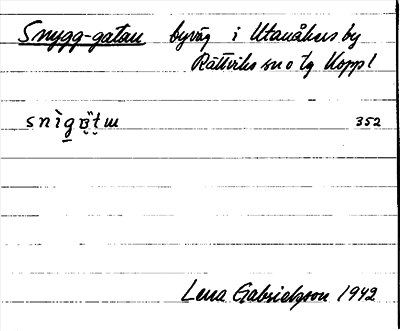 Snygg-gatan byväg i Utanåkers by
Rättviks sn o tg Kopp l
352
Lena Gabrielsson 1942